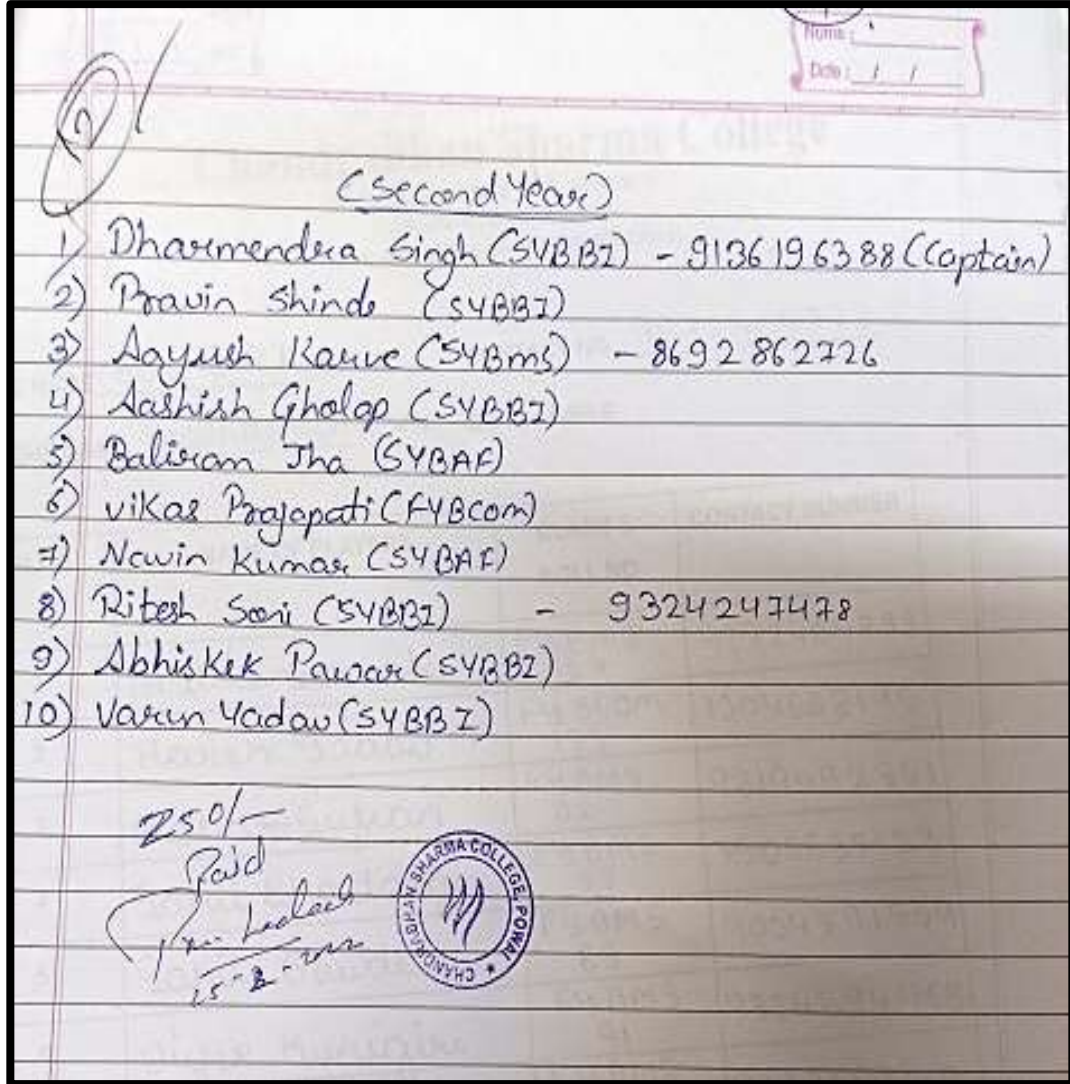 Name :
Date : / /
2
(Second Year)
1) Dharmendra Singh (SYBBI) - 9136196388 (Captain)
2) Pravin Shinde (SYBBI)
3) Aayush Karve (SYBms) - 8692862726
4) Aashish Gholap (SYBBI)
5) Baliram Jha (SYBAF)
6) vikas Prajapati (FYBcom)
7) Nawin Kumar (SYBAF)
8) Ritesh Soni (SYBBI) - 9324247478
9) Abhiskek Pawar (SYBBI)
10) Varun Yadav (SYBBI)
250/-
Paid
CHANDRABHAN SHARMA COLLEGE, POWAI ★